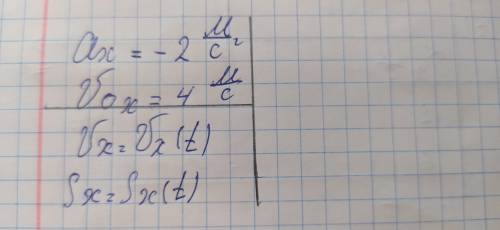 ax = - 2 м/с²
v0x = 4 м/с
vx = vx(t)
Sx = Sx(t)